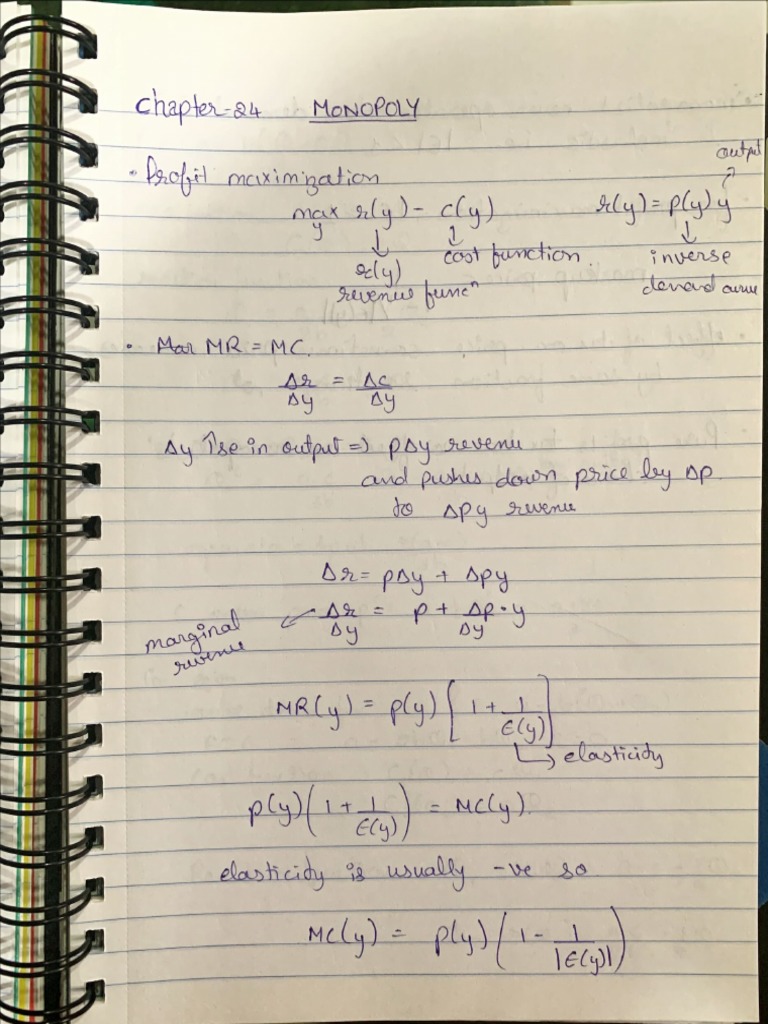 Chapter-24 MONOPOLY
output
• Profit maximization
max r(y) - c(y) r(y) = p(y) y
y
↓ ↓ cost function ↓
r(y) inverse
revenue funcⁿ demand curve
• MR = MC.
Δr/Δy = Δc/Δy
Δy ↑se in output ⇒ pΔy revenue
and pushes down price by Δp
to Δpy revenue
Δr = pΔy + Δpy
marginal revenue ← Δr/Δy = p + Δp/Δy · y
MR(y) = p(y) [1 + 1/ε(y)]
↳ elasticity
p(y) (1 + 1/ε(y)) = MC(y).
elasticity is usually -ve so
MC(y) = p(y) (1 - 1/|ε(y)|)